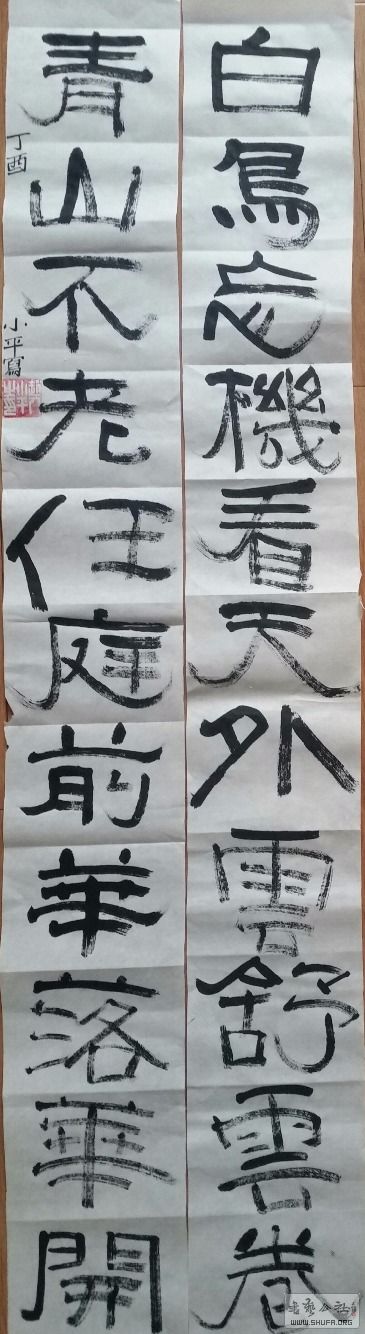 白鳥忘機看天外雲舒雲卷
青山不老任庭前華落華開
丁酉
小平寫
WWW.SHUFA.ORG